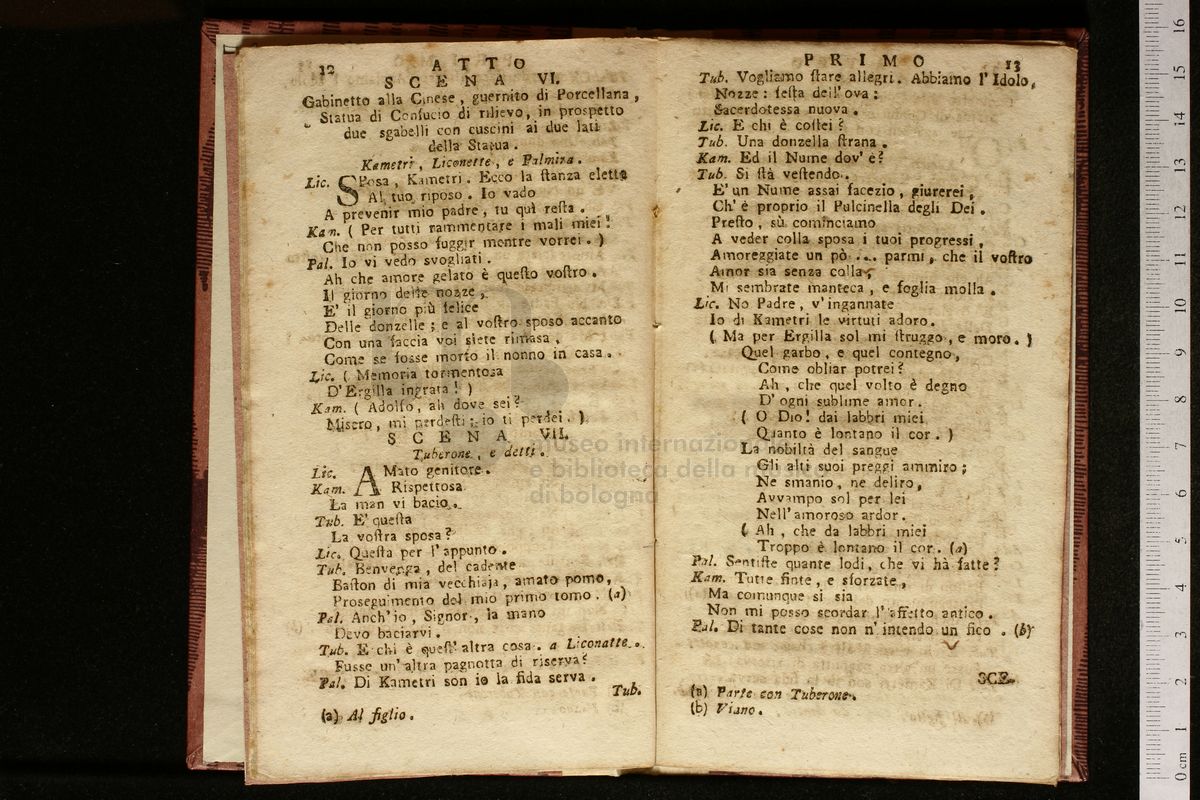 12 ATTO
SCENA VI.
Gabinetto alla Cinese, guernito di Porcellana,
Statua di Confucio di rilievo, in prospetto
due sgabelli con cuscini ai due lati
della Statua.
Kametri, Liconette, e Palmira.
Lic. SPosa, Kametri. Ecco la ſtanza eletta
Al tuo riposo. Io vado
A prevenir mio padre, tu quì reſta.
Kam. ( Per tutti rammentare i mali miei!
Che non posso fuggir mentre vorrei. )
Pal. Io vi vedo svogliati.
Ah che amore gelato è queſto voſtro.
Il giorno delle nozze,
E' il giorno più felice
Delle donzelle; e al voſtro sposo accanto
Con una faccia voi siete rimasa,
Come se fosse morto il nonno in casa.
Lic. ( Memoria tormentosa
D'Ergilla ingrata! )
Kam. ( Adolfo, ah dove sei?
Misero, mi perdeſti; io ti perdei. )
SCENA VII.
Tuberone, e detti.
Lic. AMato genitore.
Kam. Rispettosa
La man vi bacio.
Tub. E' queſta
La voſtra sposa?
Lic. Queſta per l'appunto.
Tub. Benvenga, del cadente
Baſton di mia vecchiaja, amato pomo,
Proseguimento del mio primo tomo. (a)
Pal. Anch'io, Signor, la mano
Devo baciarvi.
Tub. E chi è queſt'altra cosa. a Liconatte.
Fusse un'altra pagnotta di riserva?
Pal. Di Kametri son io la fida serva.
Tub.
(a) Al figlio.
PRIMO 13
Tub. Vogliamo ſtare allegri. Abbiamo l'Idolo,
Nozze: feſta dell'ova:
Sacerdotessa nuova.
Lic. E chi è coſtei?
Tub. Una donzella ſtrana.
Kam. Ed il Nume dov'è?
Tub. Si ſtà veſtendo.
E' un Nume assai facezio, giurerei,
Ch'è proprio il Pulcinella degli Dei.
Preſto, sù cominciamo
A veder colla sposa i tuoi progressi,
Amoreggiate un pò ... parmi, che il voſtro
Amor sia senza colla,
Mi sembrate manteca, e foglia molla.
Lic. No Padre, v'ingannate
Io di Kametri le virtuti adoro.
( Ma per Ergilla sol mi ſtruggo, e moro. )
Quel garbo, e quel contegno,
Come obliar potrei?
Ah, che quel volto è degno
D'ogni sublime amor.
( O Dio! dai labbri miei
Quanto è lontano il cor. )
La nobiltà del sangue
Gli alti suoi preggi ammiro;
Ne smanio, ne deliro,
Avvampo sol per lei
Nell'amoroso ardor.
( Ah, che da labbri miei
Troppo è lontano il cor. (a)
Pal. Sentiſte quante lodi, che vi hà fatte?
Kam. Tutte finte, e sforzate,
Ma comunque si sia
Non mi posso scordar l'affetto antico.
Pal. Di tante cose non n'intendo un fico. (b)
SCE-
(a) Parte con Tuberone.
(b) Viano.
museo internazionale
e biblioteca della musica
di bologna
0 cm 1 2 3 4 5 6 7 8 9 10 11 12 13 14 15 16